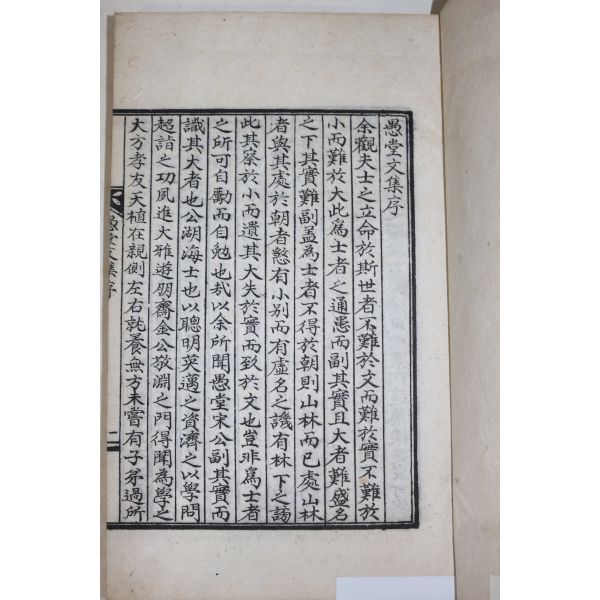 愚堂文集序
余觀夫士之立命於斯世者不難於文而難於實不難於
小而難於大此爲士者之通患而副其實且大者難盛名
之下其實難副盖爲士者不得於朝則山林而已處山林
者與其處於朝者憖有小别而有虛名之譏有林下之謗
此其察於小而遺其大失於實而致於文也豈非爲士者
之所可自勵而自勉也㦲以余所聞愚堂宋公副其實而
識其大者也公湖海士也以聰明英邁之資濟之以學問
超詣之功夙進大雅遊明齋金公敬淵之門得聞爲學之
大方孝友天植在親側左右就養無方未嘗有子弟過所
愚堂文集序